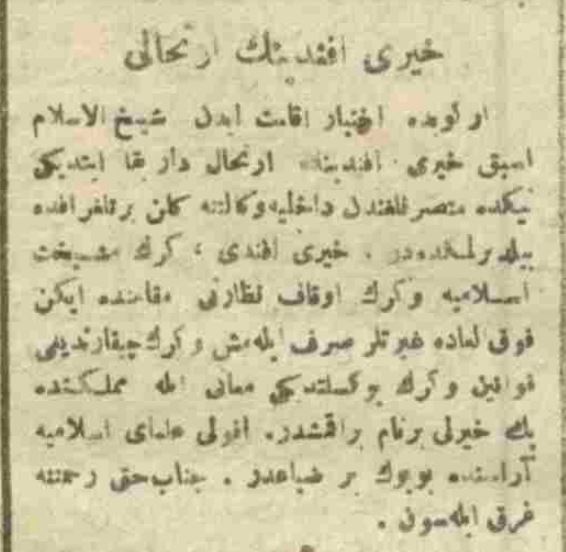 خيرى افندينك ارتحالى
اركوبده اختيار اقامت ايدن شيخ الاسلام
اسبق خيرى افندينك ارتحال دار بقا ايتديكى
نيكده متصرفلغندن داخليه وكالتنه كلن برتلغرافده
بيلديرلمكده در . خيرى افندى ، كرك مشيخت
اسلاميه وكرك اوقاف نظارتى مقامنده ايكن
فوق العاده غيرتلر صرف ايله مش وكرك چيقارتديغى
قوانين وكرك يوكسلتديكى معانى ايله مملكتده
پك خيرلى برنام براقمشدر. افولى علماى اسلاميه
آراسنده بويوك بر ضياعدر . جناب حق رحمتنه
غرق ايله سون .